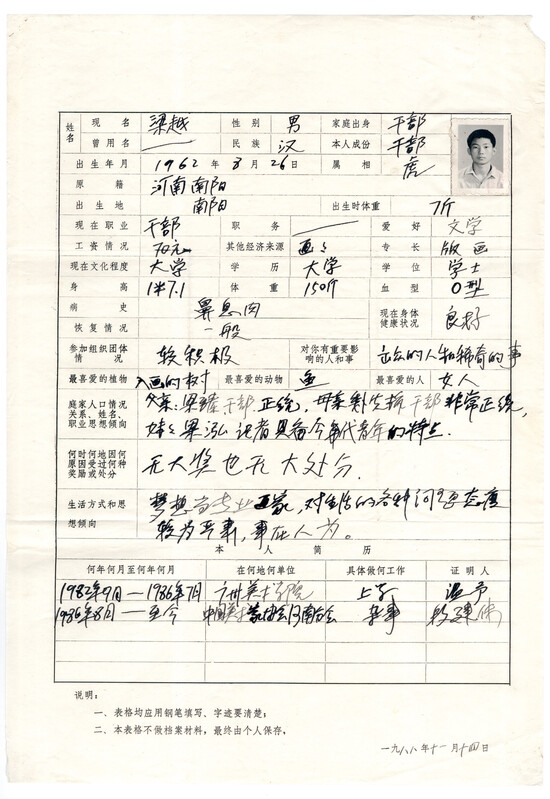 姓名 现名 梁越 性别 男 家庭出身 干部
曾用名 — 民族 汉 本人成份 干部
出生年月 1962年3月26日 属相 虎
原籍 河南南阳
出生地 南阳 出生时体重 7斤
现在职业 干部 职务 — 爱好 文学
工资情况 70元 其他经济来源 画画 专长 版画
现在文化程度 大学 学历 大学 学位 学士
身高 1米7.1 体重 150斤 血型 O型
病史 鼻息肉 现在身体健康状况 良好
恢复情况 一般
参加组织团体情况 较积极 对你有重要影响的人和事 古怪的人和稀奇的事
最喜爱的植物 入画的树 最喜爱的动物 鱼 最喜爱的人 女人
庭家人口情况 父亲:梁 干部 正统,母亲 干部 非常正统,
关系、姓名、
职业思想倾向 妹妹梁泓 记者具备今年代青年的特点.
何时何地因何原因受过何种奖励或处分 无大奖也无大处分.
生活方式和思想倾向 梦想当专业画家,对生活的各种问题态度
较为严肃,事在人为。
本人简历
何年何月至何年何月 在何地何单位 具体做何工作 证明人
1982年9月—1986年7月 广州美术学院 上学 温予
1986年8月—至今 中国美术家协会河南分会 杂事 段
说明:
一、表格均应用钢笔填写、字迹要清楚;
二、本表格不做档案材料,最终由个人保存,
一九八八年十一月十四日